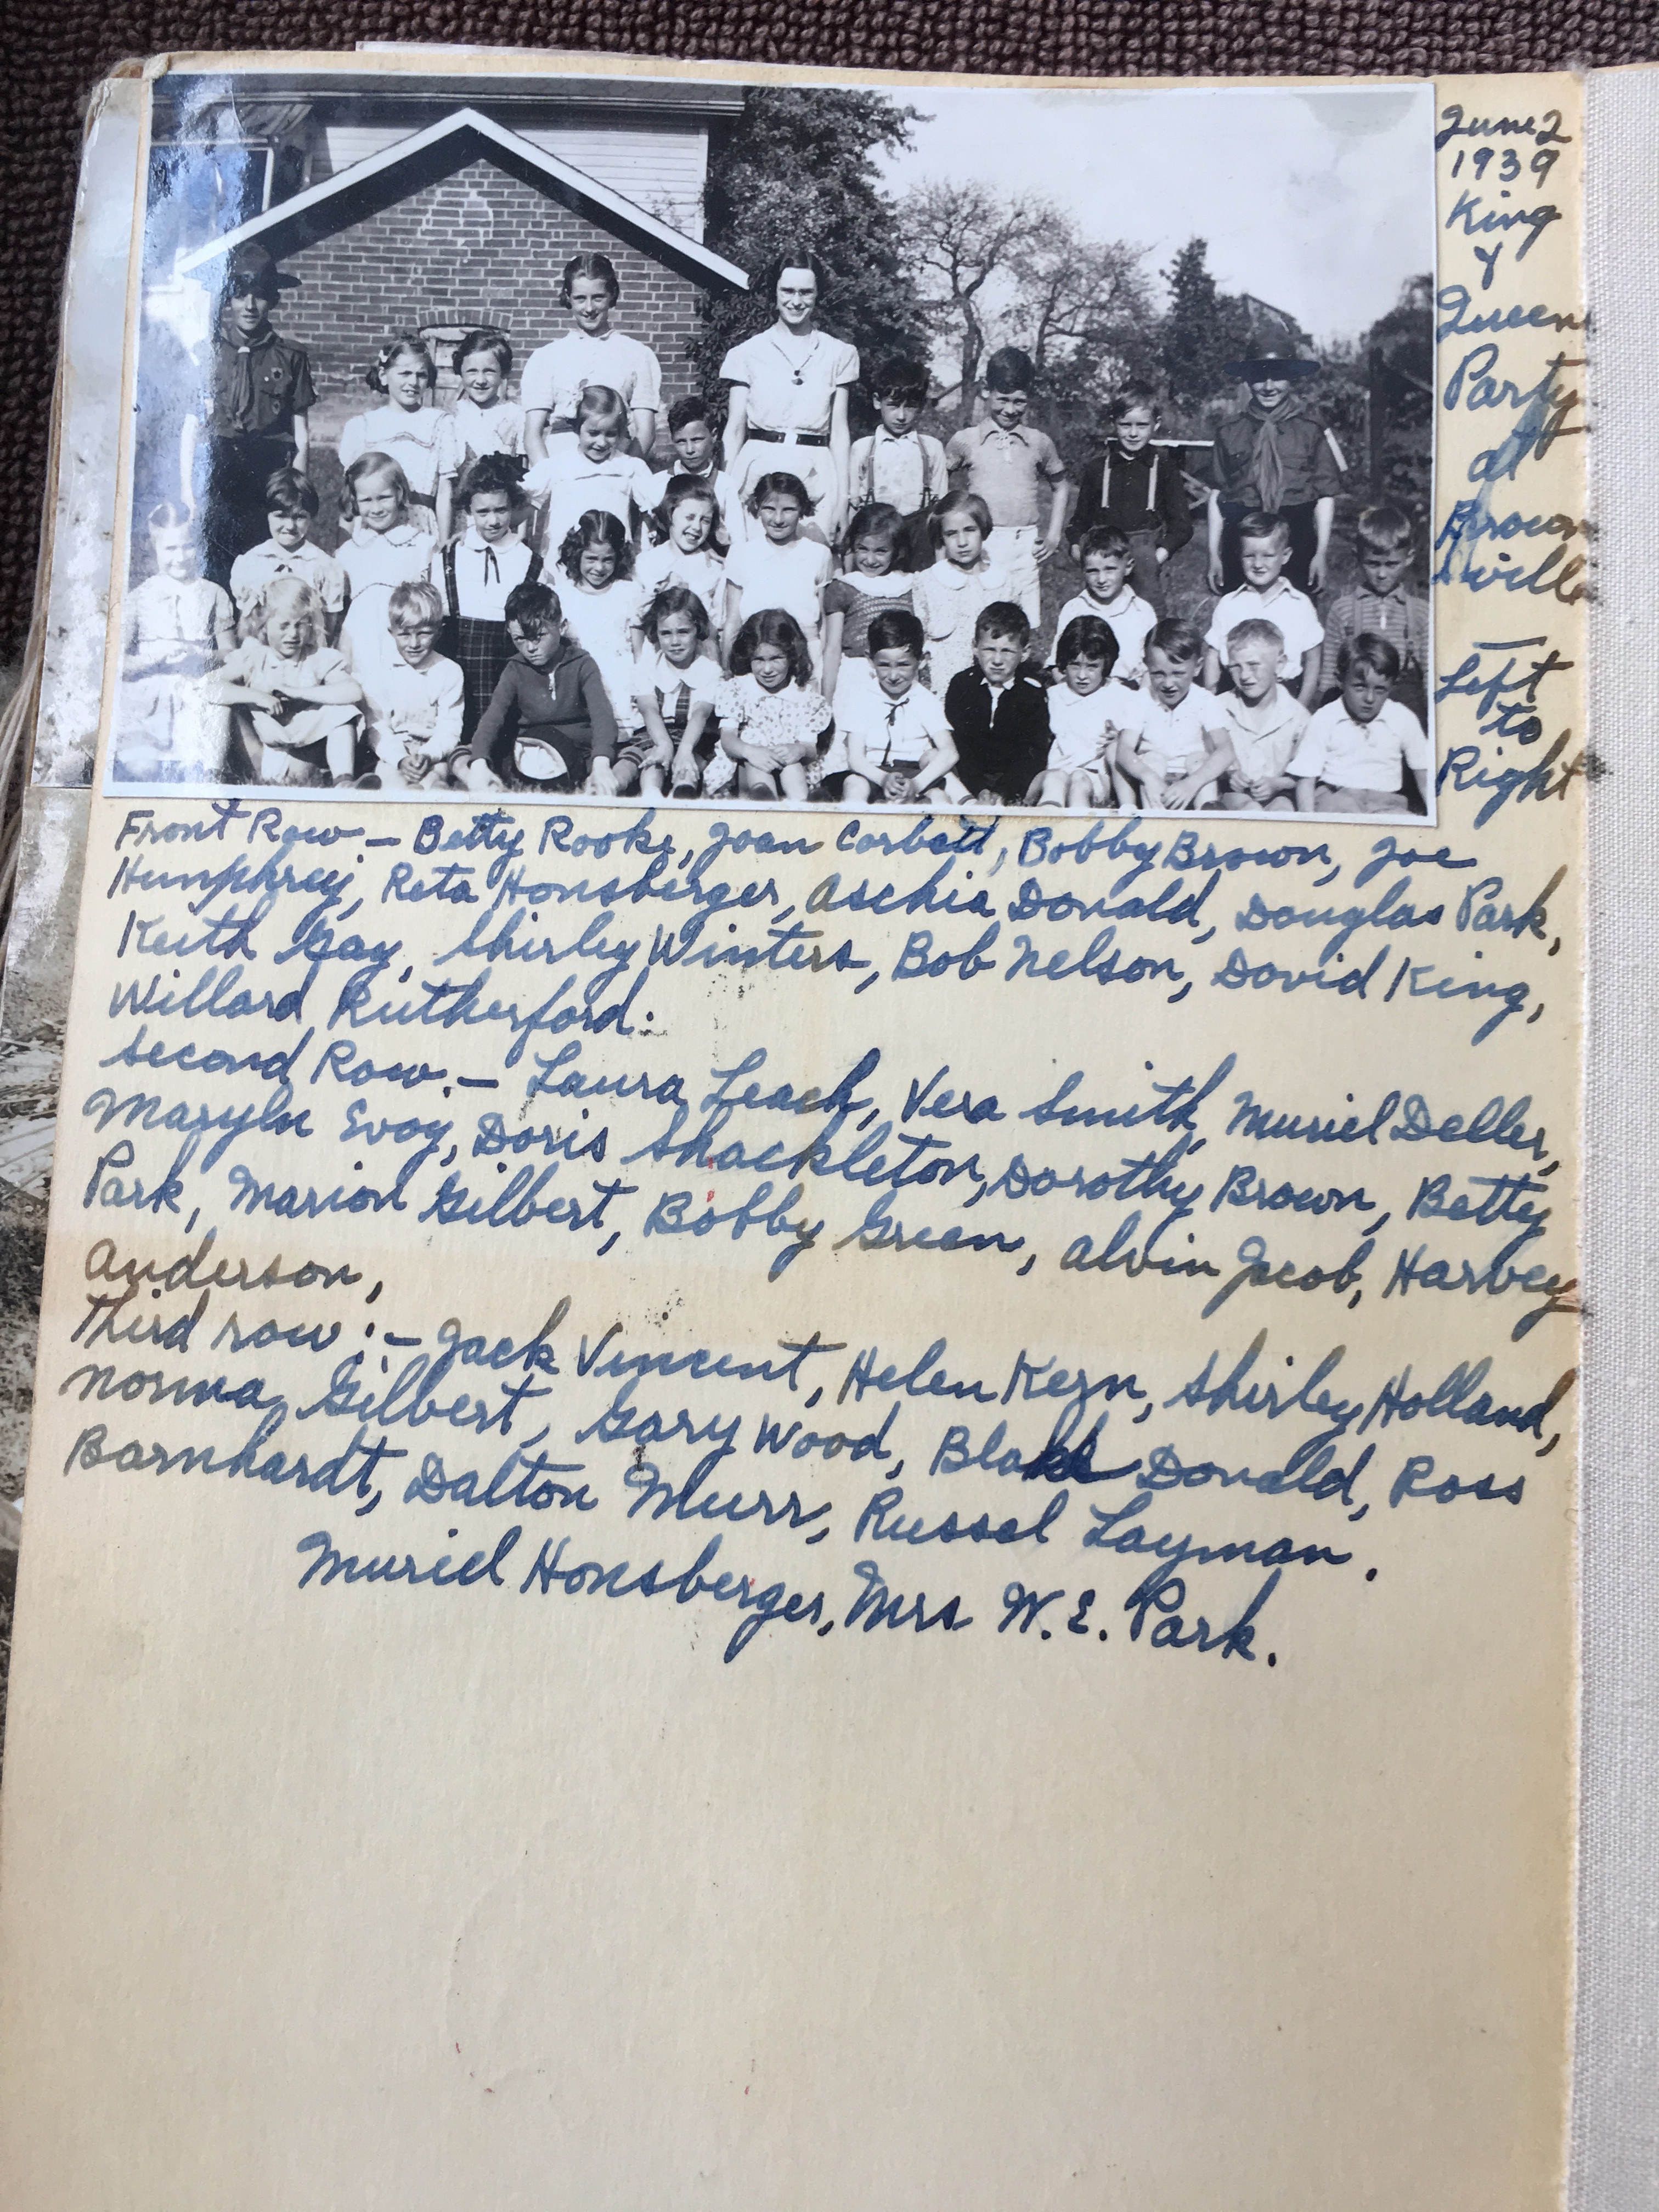 June 2
1939
King
&
Queen
Party
at
Brown
sville
Left
to
Right
Front Row - Betty Rooke, Joan Corbett, Bobby Brown, Joe
Humphrey, Reta Honsberger, Aschia Donald, Douglas Park,
Keith Gay, Shirley Winters, Bob Nelson, David King,
Willard Rutherford.
Second Row. - Laura Leach, Vera Smith, Muriel Deller,
Maryln Evoy, Doris Shackleton, Dorothy Brown, Betty
Park, Marion Gilbert, Bobby Green, Alvin Jacob, Harvey
Anderson,
Third row :- Jack Vincent, Helen Kern, Shirley Holland,
Norma Gilbert, Gary Wood, Blake Donald, Ross
Barnhardt, Dalton Murr, Russel Layman.
Muriel Honsberger, Mrs W. E. Park.